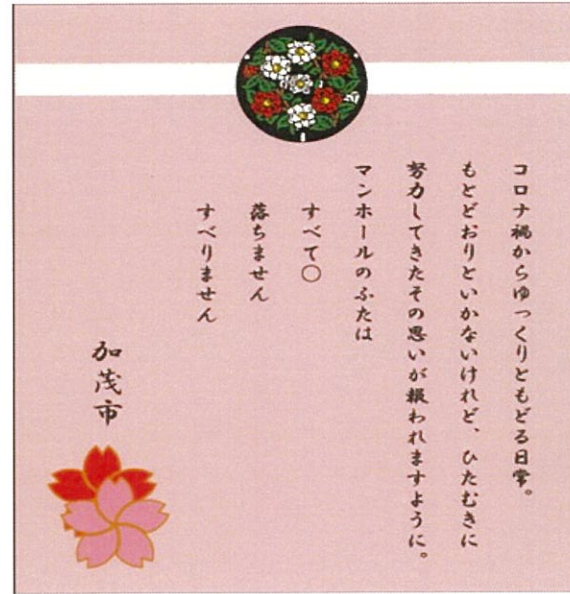 コロナ禍からゆっくりともどる日常。
もとどおりといかないけれど、ひたむきに
努力してきたその思いが報われますように。
マンホールのふたは
すべて〇
落ちません
すべりません
加茂市